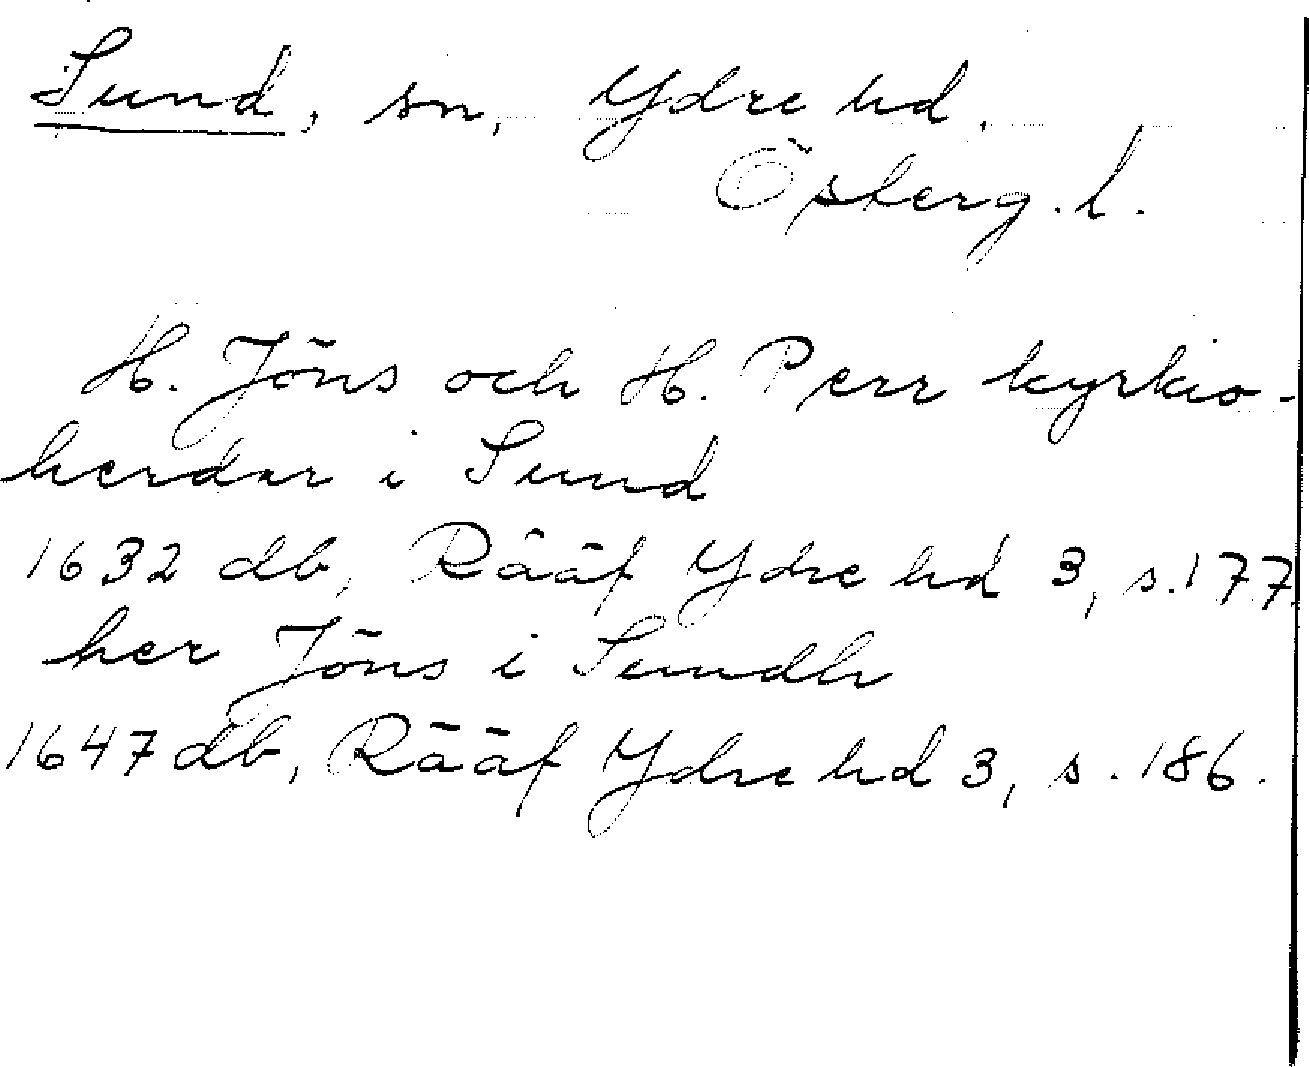 Sund, sn, Ydre hd,
Österg. l.
H. Jöns och H. Perr kyrkio-
herdar i Sund
1632 db, Rääf Ydre hd 3, s. 177.
her Jöns i Sundh
1647 db, Rääf Ydre hd 3, s. 186.